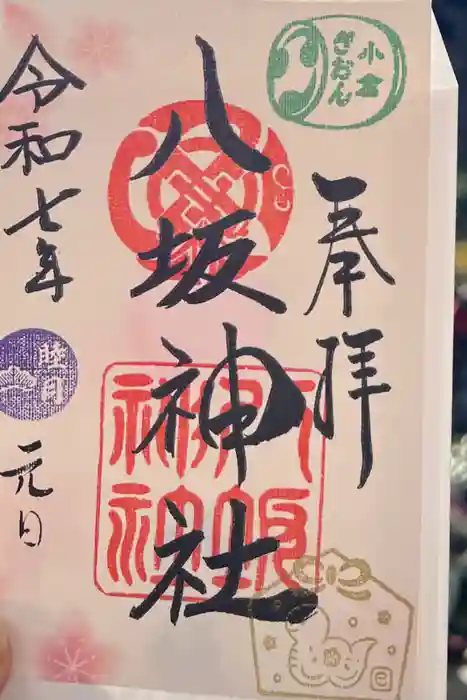 小倉
ぎおん
奉拝
八坂神社
八坂
神社
令和七年
睦月
元日
巳